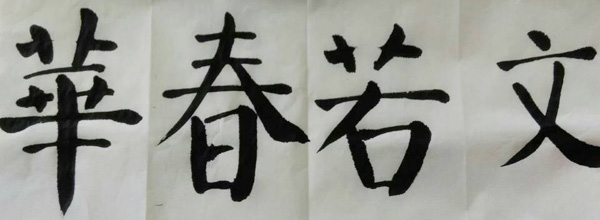 華春若文